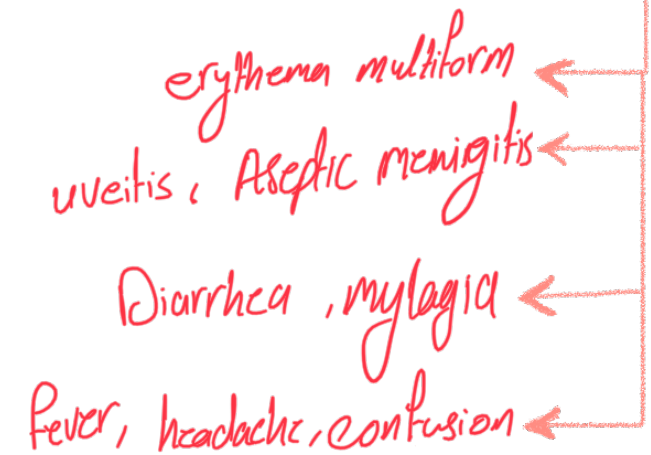 erythema multiform
uveitis, Aseptic menigitis
Diarrhea, mylagia
fever, headache, confusion